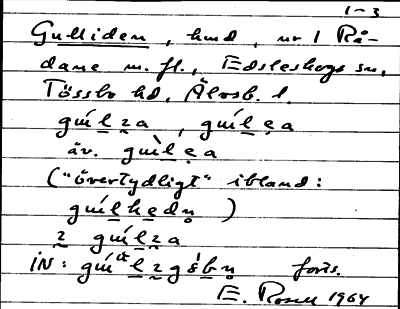 1-3
Gulliden, hmd, nr 1 Rå-
dane m. fl., Edsleskogs sn,
Tössbo hd, Älvsb. l.
gúlza, gúlẹa
äv. gùlẹa
("övertydligt" ibland:
gúlhedṇ)
gúlza
iN: forts.
E. Rosell 1964